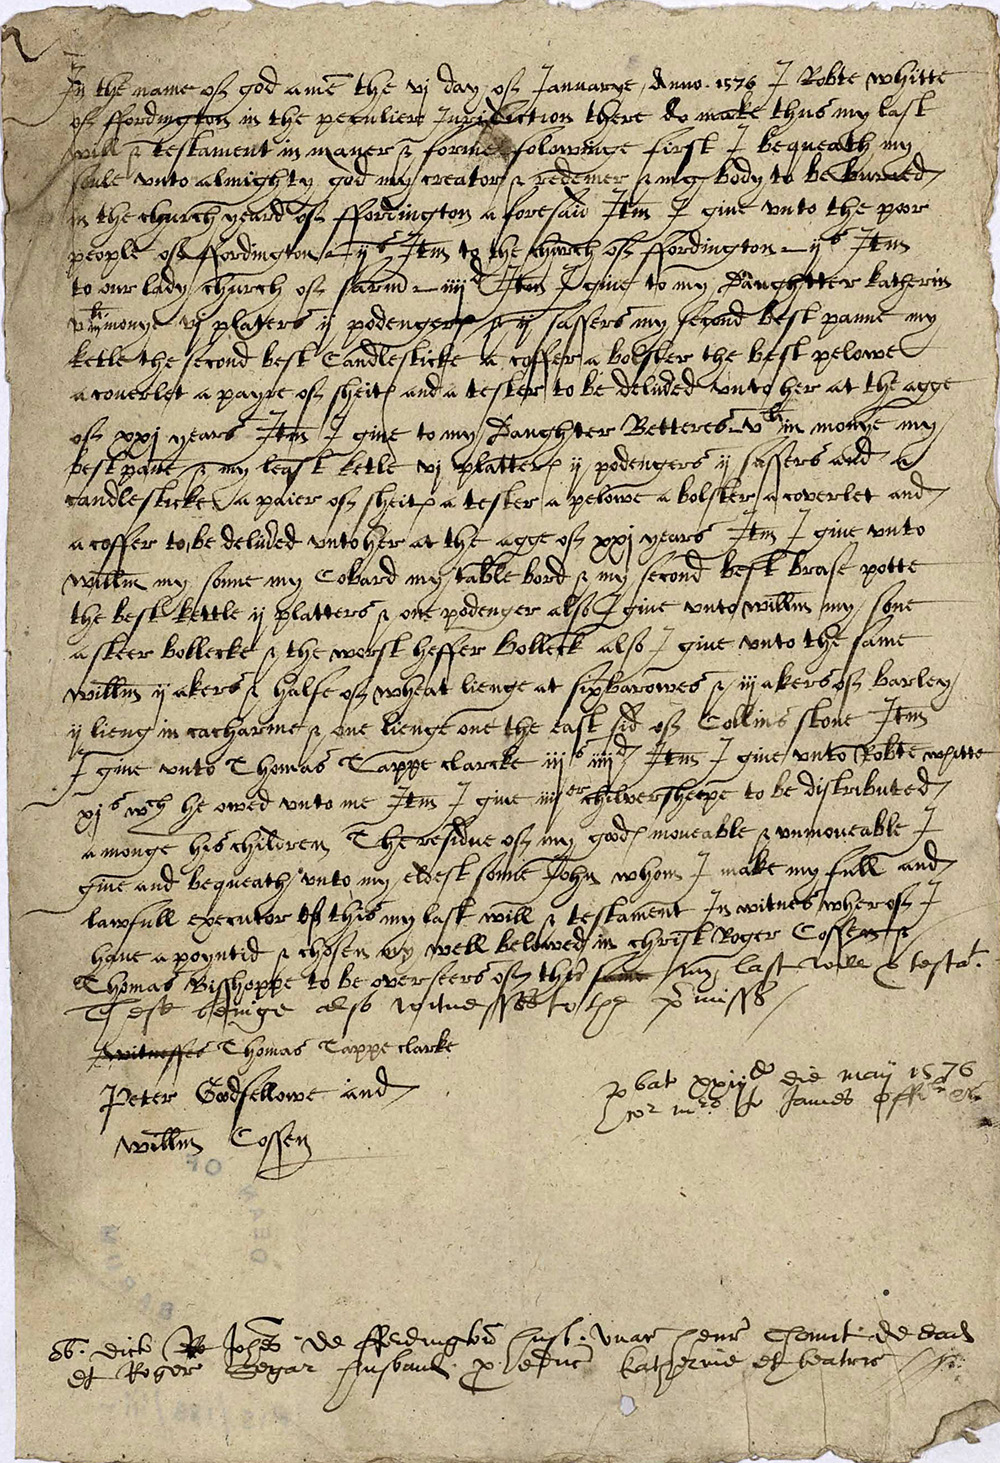 In the name of god amē the vj day of Januarye Anno. 1576 I Robte whitte
of ffordington in the peculier Jurisdiction there do make thus my last
will & testament in maner & forme folowinge first I bequeath my
soule unto almighty god my creator & redemer & my body to be buried
in the church yeard of ffordington aforesaid Itm I give unto the poor
people of ffordington – ijs Itm to the church of ffordington – ijs Itm
to our lady church of sarum – iiijd Itm I give to my Daughtter katherin
vli in monye vj platers ij podengers & ij sassers my second best panne my
ketle the second best Candlesticke a coffer a bolster the best pelowe
a coverlet a payre of sheits and a tester to be delivred unto her at the agge
of xxj years Itm I give to my Daughter Betteres vli in monye my
best pane & my least ketle vj platters ij podengers ij sassers and a
candlesticke a paier of sheits a tester a pelowe a bolster a coverlet and
a coffer to be delivred unto her at the agge of xxj years Itm I give unto
willm my sonne my Cobard my table bord & my second best brase potte
the best kettle ij platters & one podenger also I give unto willm my sone
a steer bollocke & the worst heffer bollock also I give unto the same
willm ij akers & halfe of wheat lienge at sixbarowes & iij akers of barley
ij lieng in catharine & one lienge one the east sid of Collins stone Itm
I give unto Thomas Tappe clarcke iijs iiijd Itm I give unto Robte whitte
xjs wch he owed unto me Itm I give iiijer chilversheepe to be distributed
amonge his children The residue of my goods moveable & unmoveable I
give and bequeath unto my eldest sonne John whom I make my full and
lawfull executor of this my last will & testament In witnes wherof I
have apoyntid & chosen my well beloved in christ Roger Cossen &
Thomas Bisshoppe to be overseers of this same my last will & testat.
Thes beinge also witnesses to the p̄misses
witnesses Thomas Tappe clarke
Peter Godfellowe and
willm Cossen
pbat xxiijd die maij 1576
James
dict Johēs de ffordingtō husb.
et Roger Segar husband. p. educ katherine et beatris